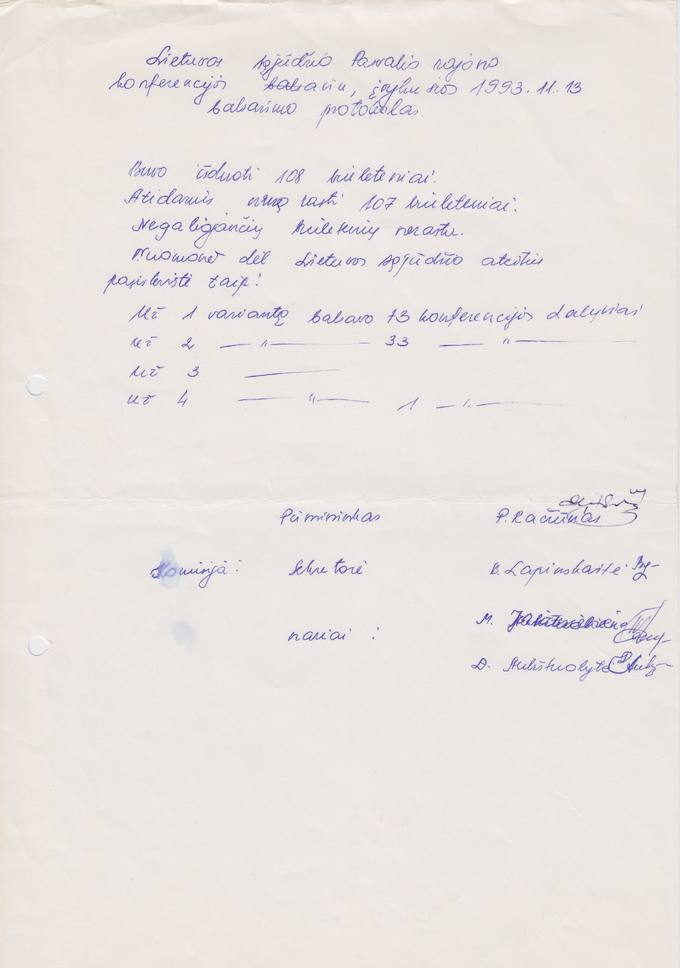 Lietuvos sąjūdžio Pasvalio rajono
konferencijos, įvykusios 1993.11.13
balsavimo protokolas.
Buvo išduoti 108 biuleteniai.
Atidarius urną rasti 107 biuleteniai.
Negaliojančių biuletenių nerasta.
Nuomonė dėl Lietuvos sąjūdžio ateities
pasiskirstė taip:
Už 1 variantą balsavo 73 konferencijos dalyviai
už 2 — " — 33 — " —
už 3 —
už 4 — " — 1 — " —
Pirmininkas P. Račiūnas
Komisija: Sekretorė B. Lapinskaitė
nariai: M.
D. Aukštuolytė